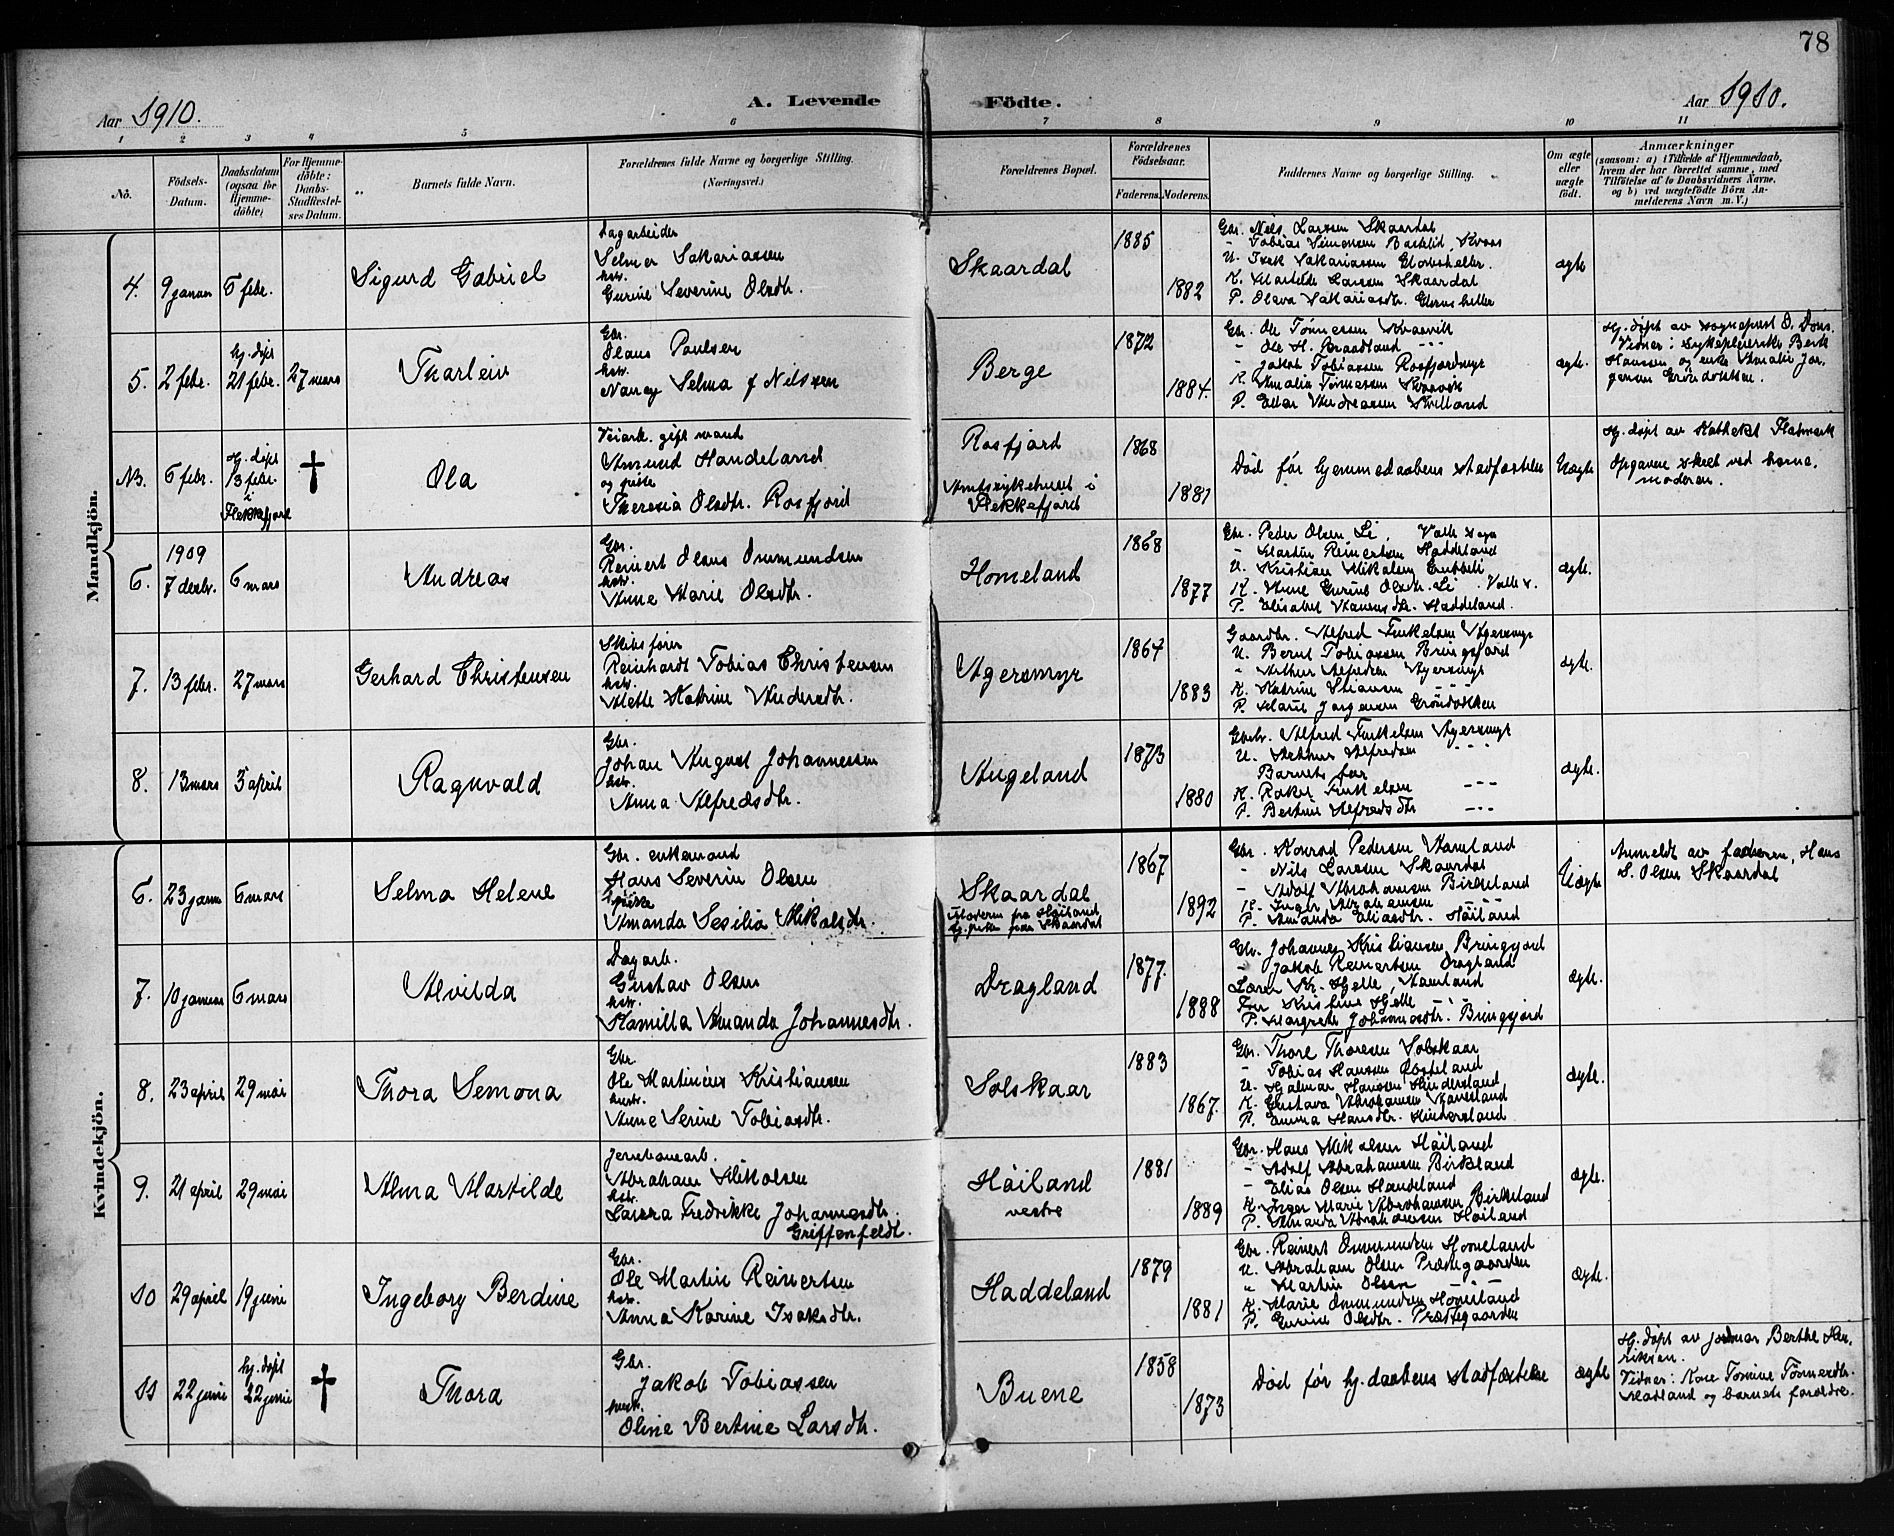 78
Aar 1910.
A. Levende
Födte.
Aar 1910.
1 2 3 4 5 6 7 8 9 10 11
No.
Födsels-Datum.
Daabsdatum (ogsaa for Hjemmedöbte)
For Hjemmedöbte: Daabs-Stadfæstelses Datum.
Barnets fulde Navn.
Forældrenes fulde Navne og borgerlige Stilling.
(Næringsvei.)
Forældrenes Bopæl.
Forældrenes Födselsaar.
Faderens. Moderens.
Faddernes Navne og borgerlige Stilling.
Om ægte eller uægte födt.
Anmærkninger
(saasom: a) i Tilfælde af Hjemmedaab, hvem der har forrettet samme, med Tilföielse af to Daabsvidners Navne, og b) ved uægtefödte Börn Anmelderens Navn m. V.)
Mandkjön.
4. 9 januar 6 febr. Sigurd Gabriel
Dagarbeider
Selmer Sakariassen
hstr.
Gurine Severine Olsdtr.
Skaardal
1885
1882
Gbr. Nils Larsen Skaardal
- Tobias Simonsen Barklid, Kvaas
U. Isak Sakariassen
K. Martilde Larsen Skaardal
P. Olava Sakariasdtr.
ægte
5. 2 febr. hj. døpt 21 febr. 27 mars Tharleiv
Gbr.
Olaus Paulsen
hstr.
Nancy Selma f Nilssen
Berge
1872
1884.
Gbr. Ole Tønnessen Kvavik
- Ole H. Braadland - - -
- Jakob Tobiassen Rosfjordmyr
K. Amalia Tønnessen Kvavik
P. Ellen Andreassen
ægte.
Hj. døpt av sogneprest O. Dons.
Vidner: sykepleierske Berte
Hansen og enke Amalie Jørgensen Grøndokken.
№3. 6 febr. Hj. døpt 13 febr. i Flekkefjord † Ola
Veiarb. gift mand
Amund Handeland
og pike
Theresia Olsdtr. Rosfjord
Rosfjord
Amtssykehuset i
Flekkefjord
1868
1881
Død før hjemmedaabens stadfæstelse
Uægte
Hj. døpt av Kateket Flatmark
Opgaven skeet ved barnemoderen.
6. 1909 7 decbr. 6 mars Andreas
Gbr.
Reinert Olaus Ommundsen
hstr.
Anne Marie Olsdtr.
Homeland
1868
1877
Gbr. Peder Olsen Li, Valle sogn
- Martin Reinertsen Haddeland
U. Kristian Mikalsen
K. Anne Gurine Olsdtr. Li. Valle s.
P. Elisabet Hansdtr. Haddeland.
ægte.
7. 13 febr. 27 mars Gerhard Christensen
Skibsfører
Reinhardt Tobias Christensen
hstr.
Mette Katrine Andersdtr.
Agersmyr
1864
1883
Gaardbr. Alfred Torkelsen Agersmyr
U. Bernt Tobiassen Bringsjord
- Arthur Alfredsen Agersmyr
K. Katrine - - -
P. Marie Jørgensen Grøndokken
ægte.
8. 13 mars 3 april Ragnvald
Gbr.
Johan August Johannessen
hstr.
Anna Alfredsdtr.
Augeland
1873
1880
Gbr. Alfred Torkelsen Agersmyr
U. Alfredsen - - -
Barnets far
K. Rakel Torkelsen - - -
P. Bertine Alfredsdtr - - -
ægte.
Kvindekjön.
6. 23 januar 6 mars Selma Helene
Gbr. enkemand
Hans Severin Olsen
& pike
Amanda Sesilia Mikalsdtr.
Skaardal
Moderen fra Høiland
1867
1892
Gbr. Konrad Pedersen Hamland
- Nils Larsen Skaardal
- Adolf Abrahamsen Birkeland
K. Inger Abrahamsen - - -
P. Amanda Eliasdtr. Høiland
Uægte
Anmeldt av faderen, Hans
S. Olsen Skaardal
7. 10 januar 6 mars Alvilda
Dagarb.
Gustav Olsen
hstr.
Kamilla Amanda Johannesdtr.
Dragland
1877.
1888
Gbr. Johannes Kristiansen, Bringsjord
- Jakob Reinertsen Dragland
Lærer Kr. Hjelle, Hamland
Fru Kristine Hjelle - - -
P. Margrete Johannesdtr. Bringsjord
ægte.
8. 23 april 29 mai Thora Semona
Gbr
Ole Martinius Kristiansen
hustr.
Anne Serine Tobiasdtr.
Solskaar
1883
1867.
Gbr. Thore Thoresen Solskaar
- Tobias Hanssen
U. Hjalmar Hanssen Hindersland
K. Gustava Abrahamsen
P. Emma Hansdtr. Hindersland
ægte.
9. 21 april 29 mai Alma Martilde
Jernbanearb.
Abraham Mikalsen
hstr.
Laura Fredrikke Johannesdtr.
Griffenfeldt.
Høiland
vestre
1881
1889
Gbr. Hans Mikalsen Høiland
- Adolf Abrahamsen Birkeland
- Elias Olsen Handeland
K. Inger Marie Abrahamsen Birkeland
P. Amanda Abrahamsen Høiland
ægte.
10 29 april 19 juni Ingeborg Berdine
Gbr.
Ole Martin Reinertsen
hstr.
Anna Karine Isaksdtr.
Haddeland
1879
1881
Gbr. Reinert Ommundsen Homeland
U. Abraham Olsen Præstegaarden
" Martin Olsen - - -
K. Marie Ommundsen Homeland
P. Gurine Olsdtr. Præstegaarden
Ægte.
11 22 juni hj. døpt 22 juni † Thora
Gbr.
Jakob Tobiassen
hustr.
Oline Bertine Larsdtr.
Buene
1858
1873
Død før hj. daabens stadfæstelse
ægte
Hj. døpt av jordmor Berthe Henriksen.
Vidner: Kone Tomine Tønnesdtr.
og barnets forældre.